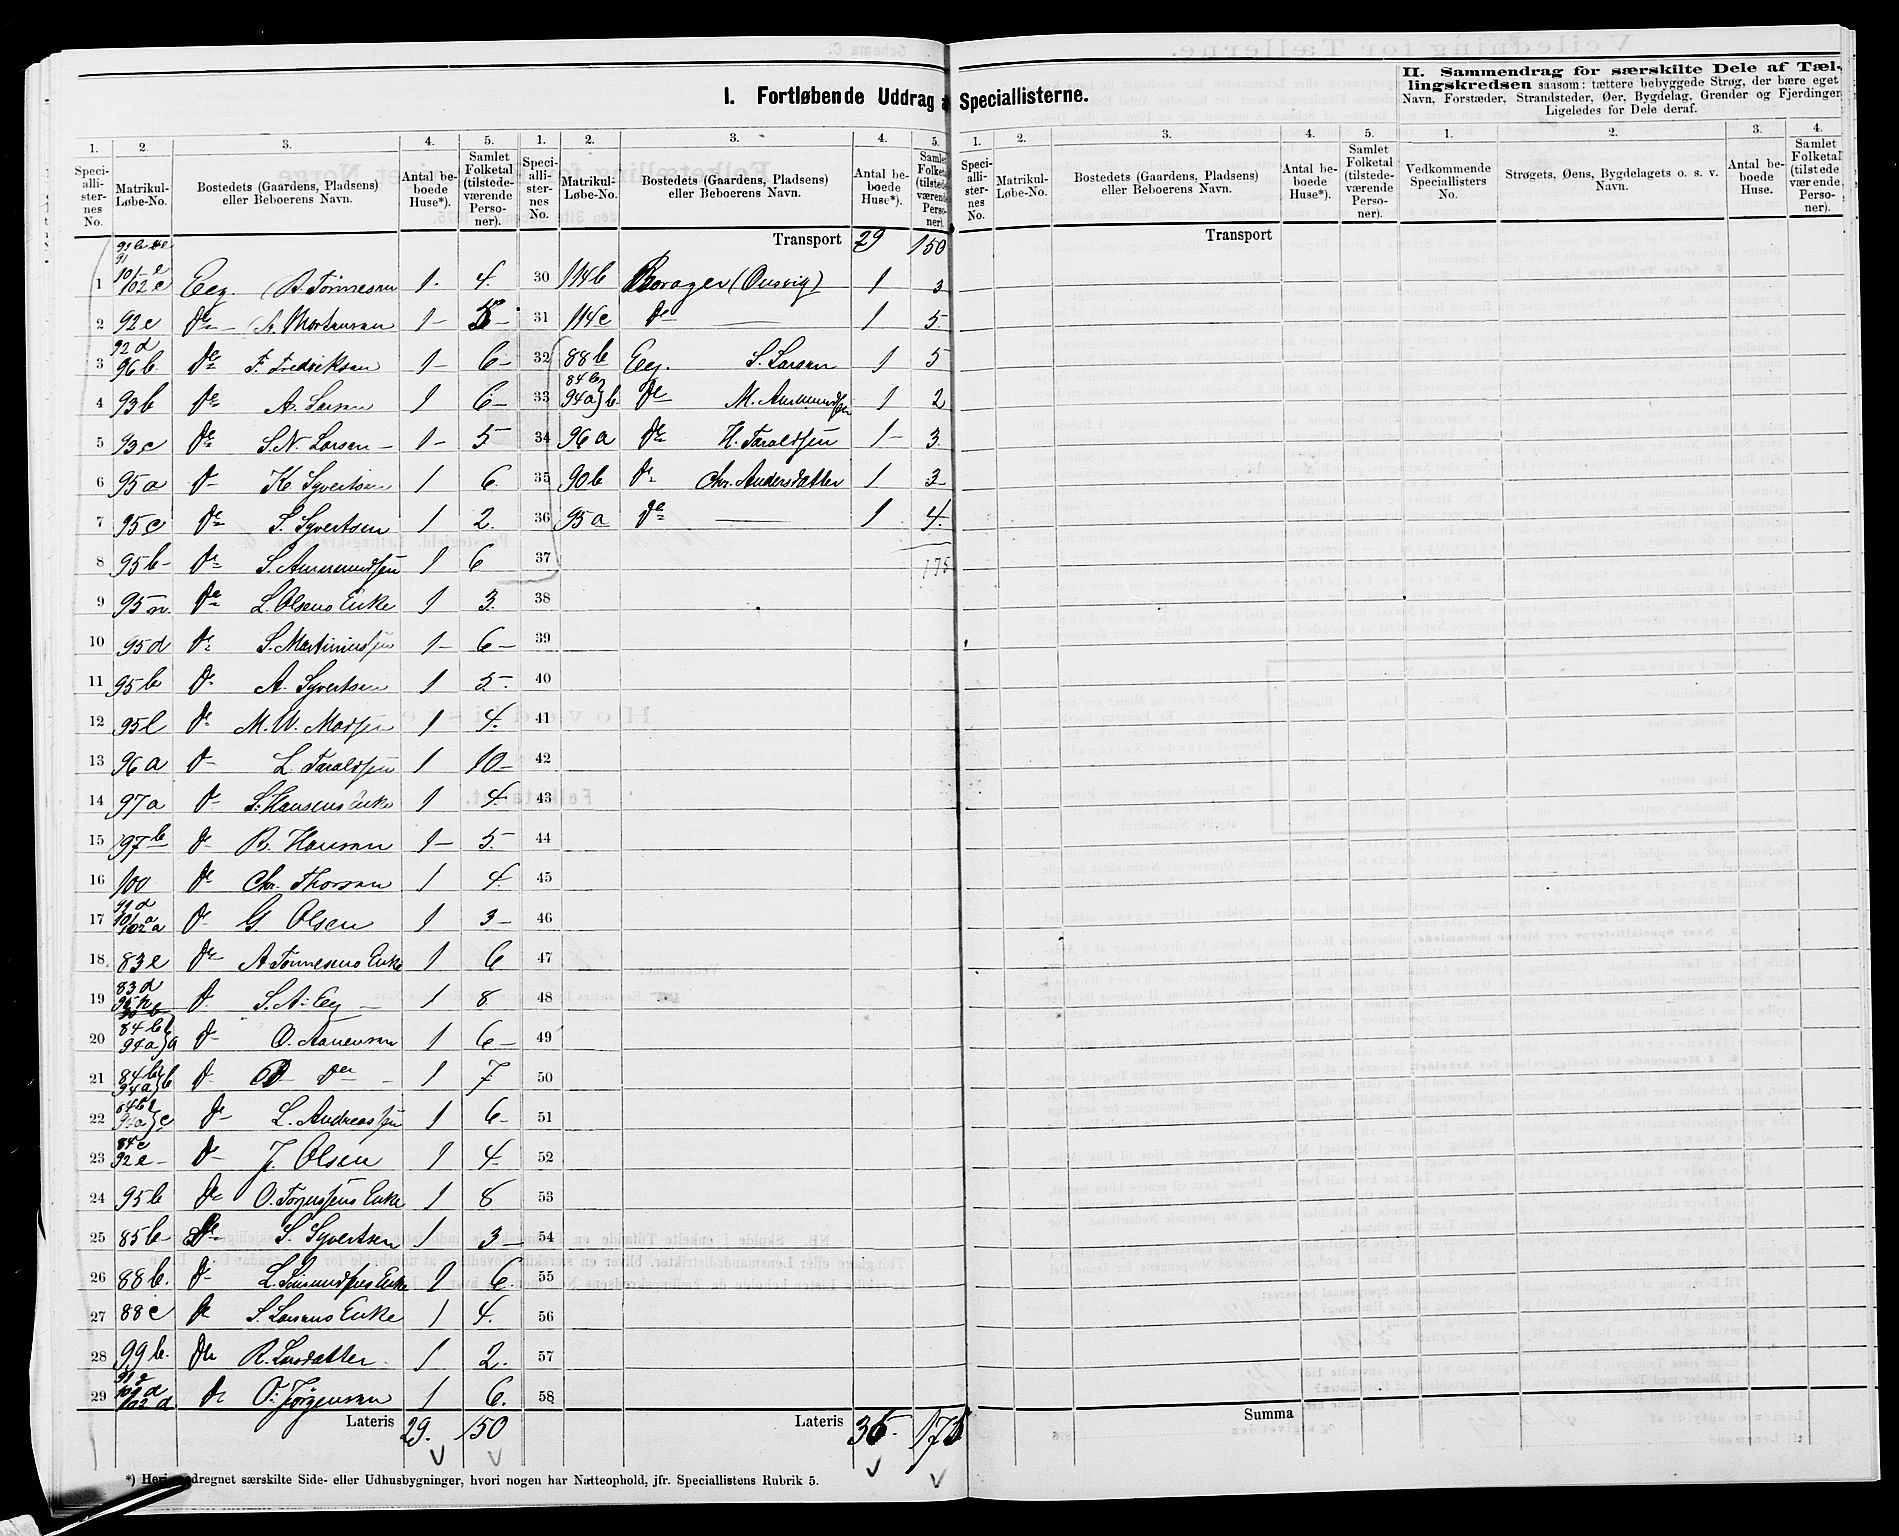 I. Fortløbende Uddrag a
Speciallisterne.
II. Sammendrag for særskilte Dele af Tæl-
lingskredsen saasom: tættere bebyggede Strøg, der bære eget
Navn, Forstæder, Strandsteder, Øer, Bygdelag, Grender og Fjerdinger
Ligeledes for Dele deraf.
1. 2. 3. 4. 5. 1. 2. 3. 4. 5.
Speciallisternes No. Matrikul-Løbe-No. Bostedets (Gaardens, Pladsens) eller Beboerens Navn. Antal beboede Huse*). Samlet Folketal (tilstedeværende Personer).
Transport 29 150
1 101 e 102 c Eeg. A Tönnesen 1. 4.
2 92 e De A Mortensen 1 5
3 92 d 96 b. De F. Fredriksen 1 6
4 93 b De A. Larsen 1 6
5 93 c De S. N. Larsen 1 5
6 95 a D K Syvertsen 1 6
7 95 c De S. Syvertsen 1 2.
8 95 b De S. Ammundsen 1 6
9 95 n. De L. Olsens Enke 1 3.
10 95 d De S. Martiniussen 1 6
11 95 b De A. Syvertsen 1 5.
12 95 l De M. W. Madsen 1 4.
13 96 a D L Taraldsen 1 10
14 97 a D S. Hansens Enke 1 4.
15 97 b D R. Hansen 1 5.
16 100 De Chr. Thorsen 1 4.
17 91 d 101 a 102 a D G Olsen 1 3
18 83 e De A Tönnesens Enke 1 6
19 83 d D. S. A. Eeg 1 8
20 84 b 94 a } a D O. Aanensen 1 6
21 84 b 94 a } b D 1 7
22 94 a } c De L. Andreassen 1 6
23 84 c 92 e D J. Olsen 1 4.
24 95 b De O. Enke 1 8
25 85 b De S. Syvertsen 1 3
26 88 b. D L. Enke 1 6.
27 88 c De S. Larsens Enke 1 4.
28 99 b. De R. Larsdatter. 1 2.
29 101 d 102 d De O. Jörgensen 1 6.
Lateris 29. 150
30 114 b Borager (Ousvig) 1 3
31 114 c De 1 5.
32 88 b Eeg. S. Larsen 1 5
33 84 b 94 a } b. De M. Ammundsen 1 2
34 96 a De H. Taraldsen 1 3.
35 90 b De Chr. Andersdatter 1 3
36 95 a De 1 4.
37 175
38
39
40
41
42
43
44
45
46
47
48
49
50
51
52
53
54
55
56
57
58
Lateris 36. 175
1. 2. 3. 4. 5. 1. 2. 3. 4.
Speciallisternes No. Matrikul-Løbe-No. Bostedets (Gaardens, Pladsens) eller Beboerens Navn. Antal beboede Huse*). Samlet Folketal (tilstedeværende Personer). Vedkommende Speciallisters No. Strøgets, Øens, Bygdelagets o. s. v. Navn. Antal beboede Huse. Samlet Folketal (tilstedeværende Personer).
Transport
Summa
*) Heri dregnet særskilte Side- eller Udhusbygninger, hvori nogen har Natteophold, jfr. Speciallistens Rubrik 5.